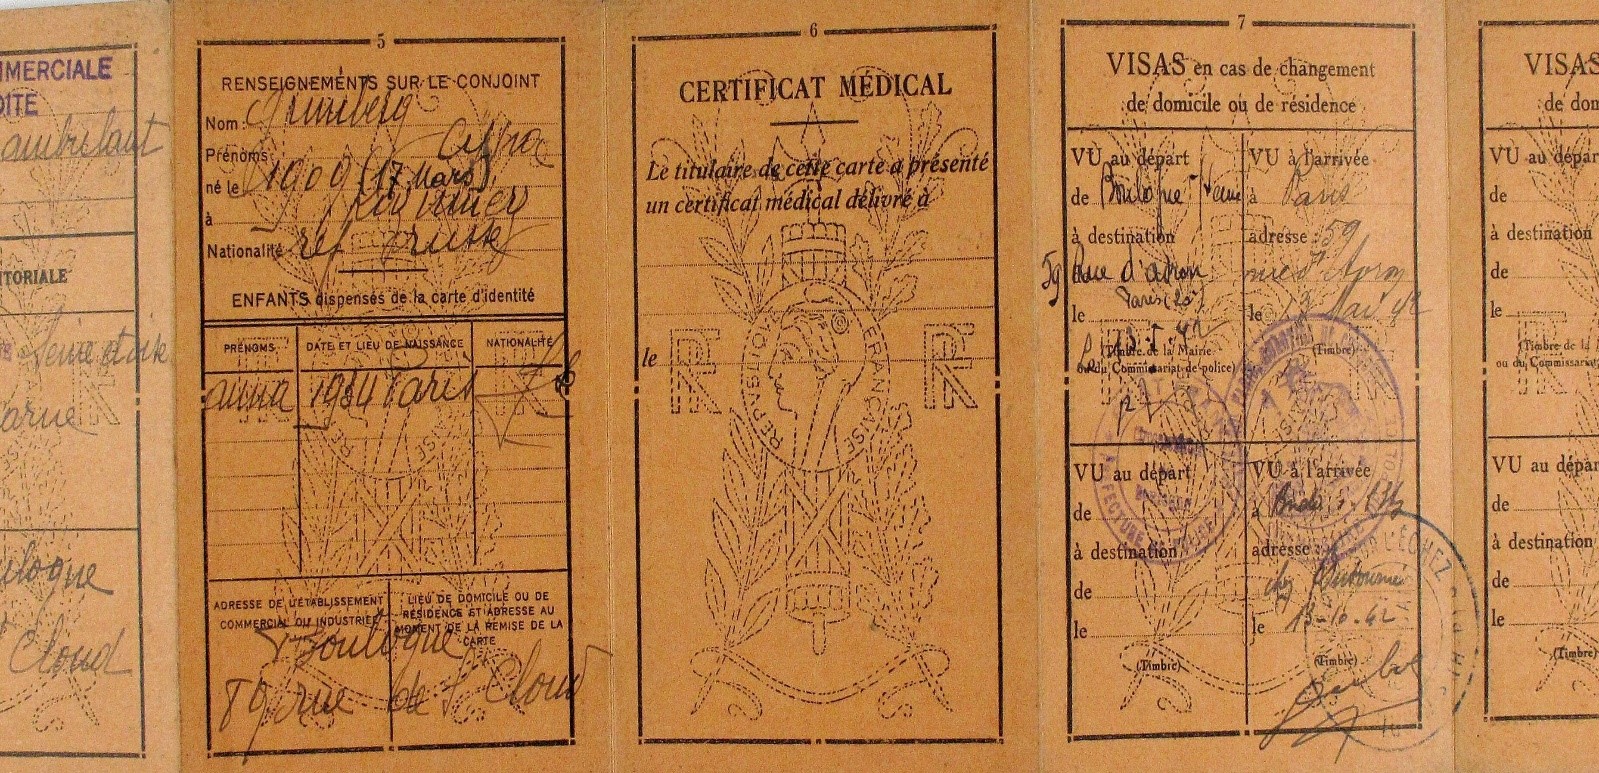 MMERCIALE
OITE
ambulant
ITORIALE
Seine et Oise
arne
ulogne
Cloud
5
RENSEIGNEMENTS SUR LE CONJOINT
Nom:
Prénoms:
né le 1909 (17 Mars)
à
Nationalité ref russe
ENFANTS dispensés de la carte d'identité
PRÉNOMS DATE ET LIEU DE NAISSANCE NATIONALITÉ
anna 1934 Paris
ADRESSE DE L'ÉTABLISSEMENT
COMMERCIAL OU INDUSTRIEL
LIEU DE DOMICILE OU DE
RÉSIDENCE ET ADRESSE AU
MOMENT DE LA REMISE DE LA
CARTE
Boulogne
89 rue de St Cloud
6
CERTIFICAT MÉDICAL
Le titulaire de cette carte a présenté
un certificat médical délivré à
le
RF
RF
REPVBLIQVE FRANÇAISE
7
VISAS en cas de changement
de domicile ou de résidence
VU au départ
de Boulogne s/ Seine
à destination
59 Rue d'avron
Paris (20)
le 13.5.42
(Timbre de la Mairie
ou du Commissariat de police)
VU à l'arrivée
à Paris
adresse: 59
rue d'Avron
le 13 Mai 42
(Timbre)
VU au départ
de
à destination
de
le
(Timbre)
VU à l'arrivée
à
adresse:
chez
le 13-10-42
(Timbre)
L'ECHEZ
VISAS
de dom
VU au départ
de
à destination
de
le
(Timbre de la
ou du Commissariat
VU au départ
de
à destination
de
le
(Timbre)